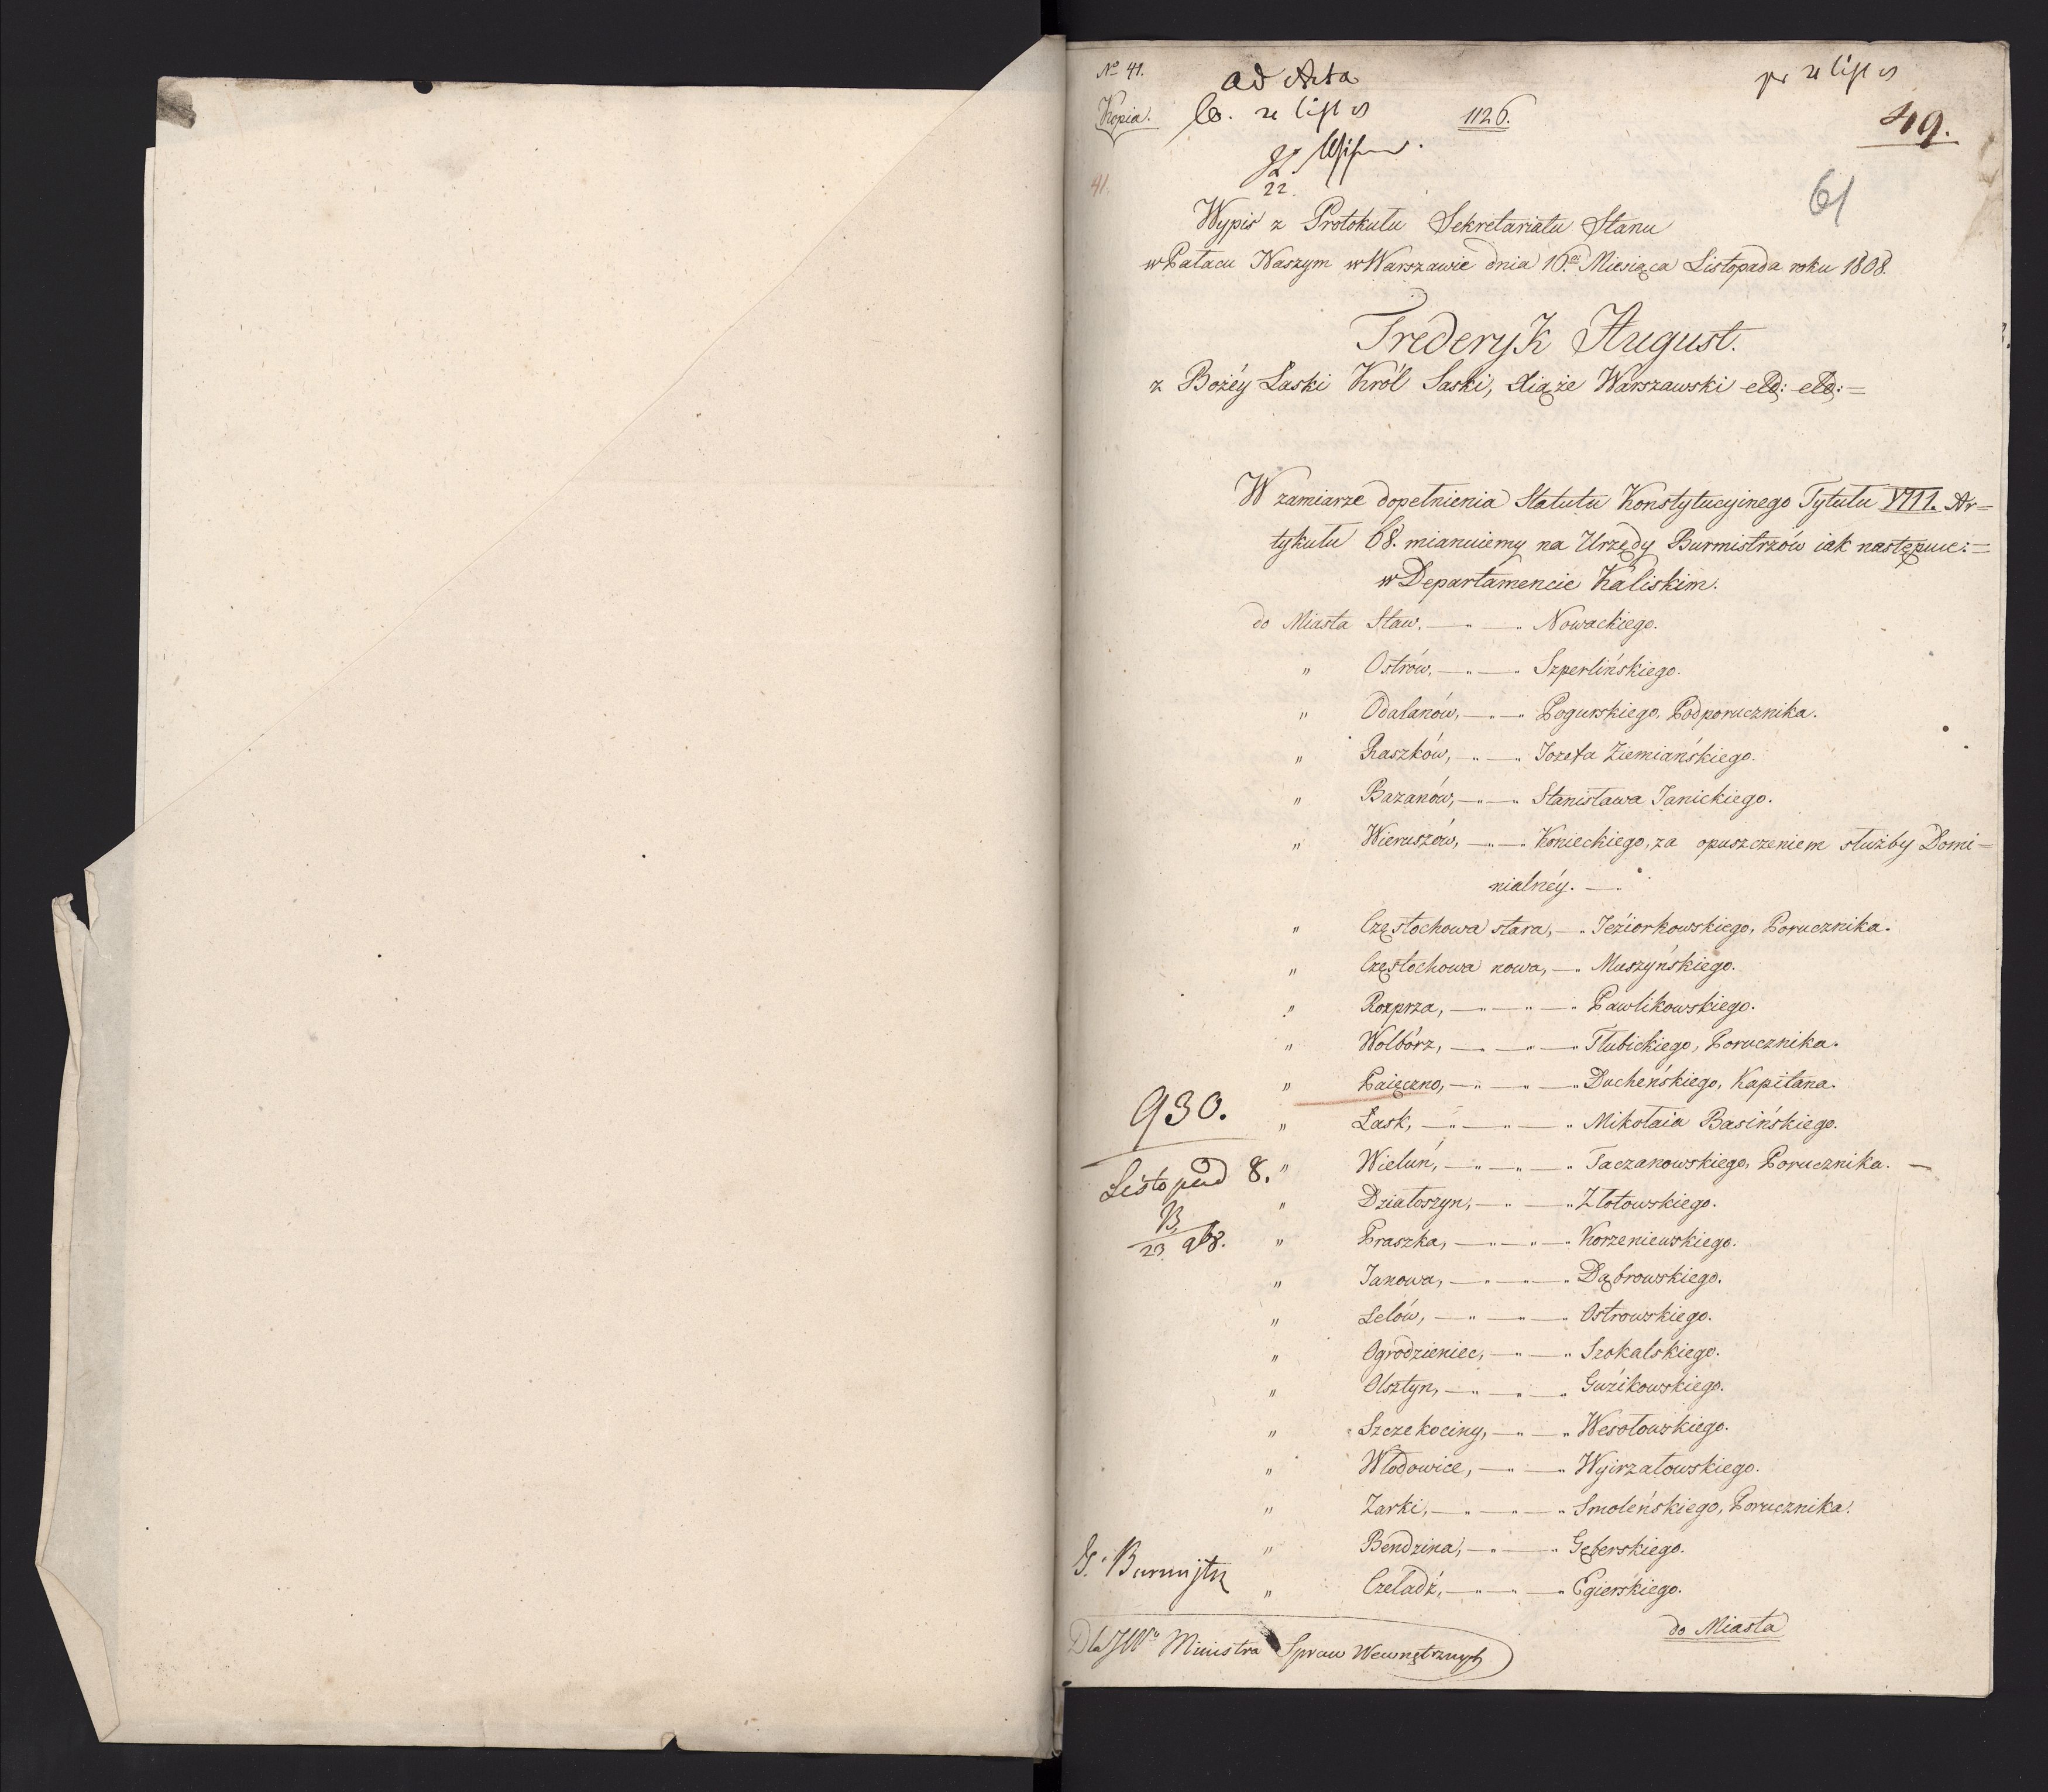 No 41.
Kopia.
ad Acta
22
1126.
49.
61
41.
Wypis z Protokułu Sekretariatu Stanu
w Pałacu Naszym w Warszawie dnia 16. Miesiąca Listopada roku 1808.
Frederyk August.
z Bożéy Łaski Król Saski, Xiąże Warszawski etc: etc: =
W zamiarze dopełnienia Statutu Konstytucyinego Tytułu VIII. Ar=
tykułu 68. mianuiemy na Urzędy Burmistrzów iak następuie: =
w Departamencie Kaliskim.
do Miasta Staw. — " — " Nowackiego.
" Ostrów, — " — " Szperlińskiego.
" Odalanów, — " — " Pogurskiego, Podporucznika.
" Raszków, — " — " Jozefa Ziemiańskiego.
" Bazanów, — " — " Stanisława Janickiego.
" Wieruszów, — " — " Konieckiego, za opuszczeniem służby Domi=
nialnéy. —
" Częstochowa stara, — " Jeźiorkowskiego, Porucznika.
" Częstochowa nowa, — " Muszyńskiego.
" Rozprza, — " — " — " Pawlikowskiego.
" Wolbórz, — " — " — " Tłubickiego, Porucznika.
" Paięczno, — " — " — " Ducheńskiego, Kapitana.
" Łask, — " — " — " Mikołaia Basińskiego.
" Wieluń, — " — " — " Taczanowskiego, Porucznika. —
" Działoszyn, — " — " Złotowskiego.
" Praszka, — " — " — " Korzeniewskiego.
" Janowa, — " — " — " Dąbrowskiego.
" Lelów, — " — " — " Ostrowskiego.
" Ogrodzieniec, — " — " Szokalskiego.
" Olsztyn, — " — " — " Guźikowskiego.
" Szczekociny, — " — " Wesołowskiego.
" Włodowice, — " — " Wyirzałowskiego.
" Żarki, — " — " — " Smoleńskiego, Porucznika.
" Bendzina, — " — " Gęberskiego.
" Czeladź, — " — " — " Egierskiego.
do Miasta
930.
Listopad 8.
23 9b8.
Burmistrz
Dla JW Ministra Spraw Wewnętrznych